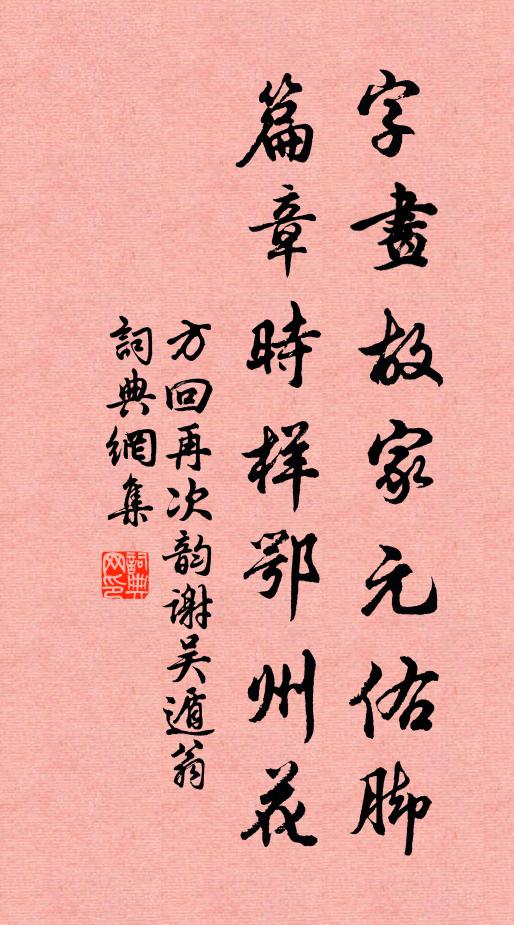 字畫故家元佑脚
篇章時样鄂州花
方回再次韵謝吴遁翁
詞典網集
詞典网印